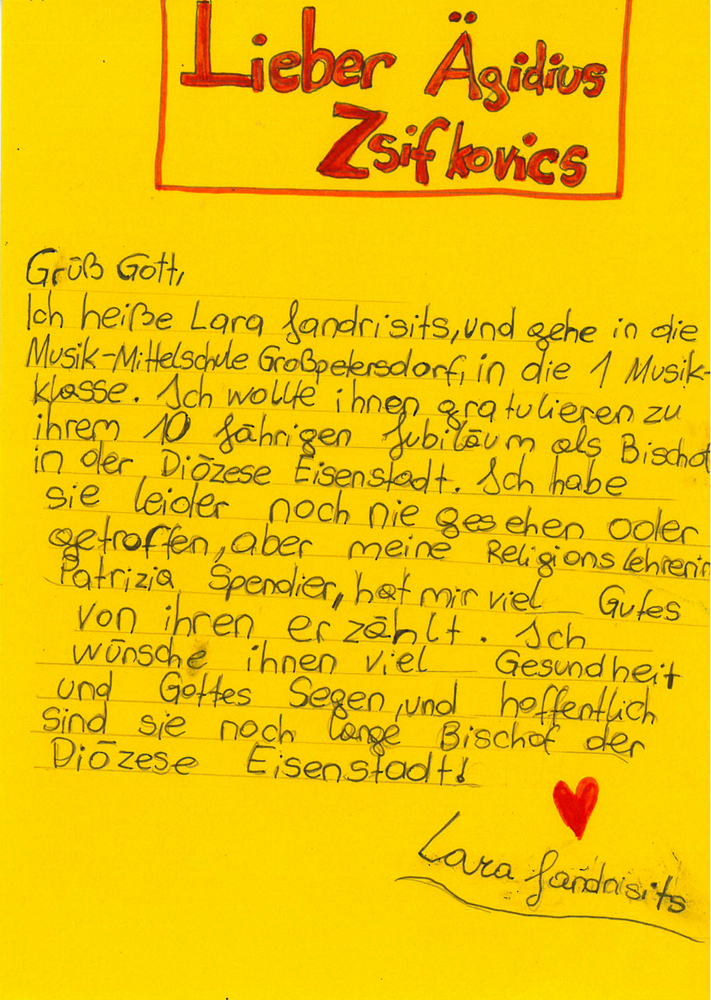 Lieber Ägidius
Zsifkovics
Grüß Gott,
Ich heiße Lara Jandrisits, und gehe in die
Musik-Mittelschule Großpetersdorf, in die 1 Musik-
klasse. Ich wollte ihnen gratulieren zu
ihrem 10 jährigen Jubiläum als Bischof
in der Diözese Eisenstadt. Ich habe
sie leider noch nie gesehen oder
getroffen, aber meine Religionslehrerin
Patrizia Spendier, hat mir viel Gutes
von ihren erzählt. Ich
wünsche ihnen viel Gesundheit
und Gottes Segen, und hoffentlich
sind sie noch lange Bischof der
Diözese Eisenstadt!
Lara Jandrisits